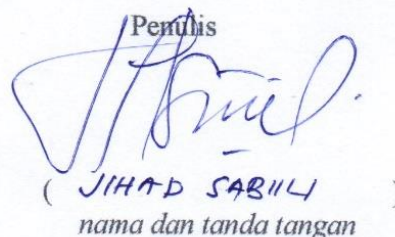 Penulis
( JIHAD SABIILI )
nama dan tanda tangan